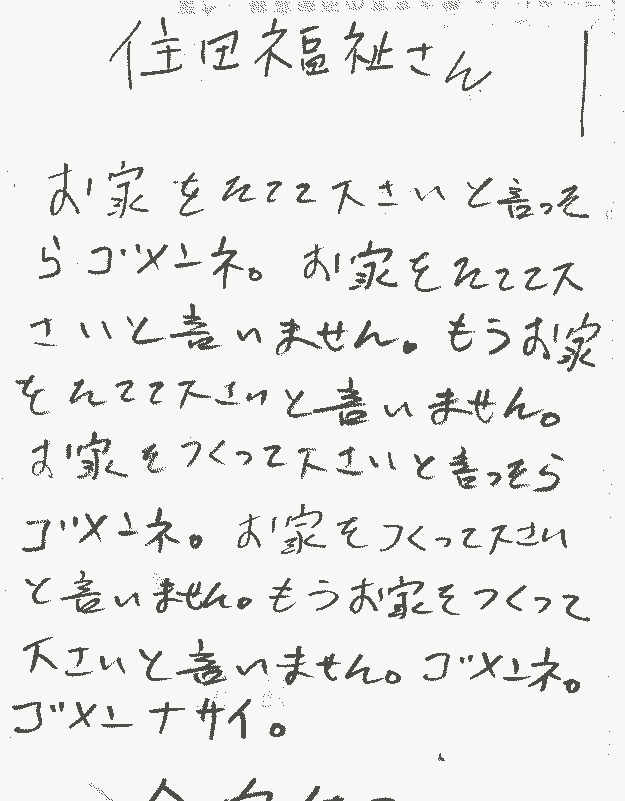 住田福祉さん
お家をたてて下さいと言ったら
ゴメンネ。お家をたてて下
さいと言いません。もうお家
をたてて下さいと言いません。
お家をつくって下さいと言ったら
ゴメンネ。お家をつくって下さい
と言いません。もうお家をつくって
下さいと言いません。ゴメンネ。
ゴメンナサイ。